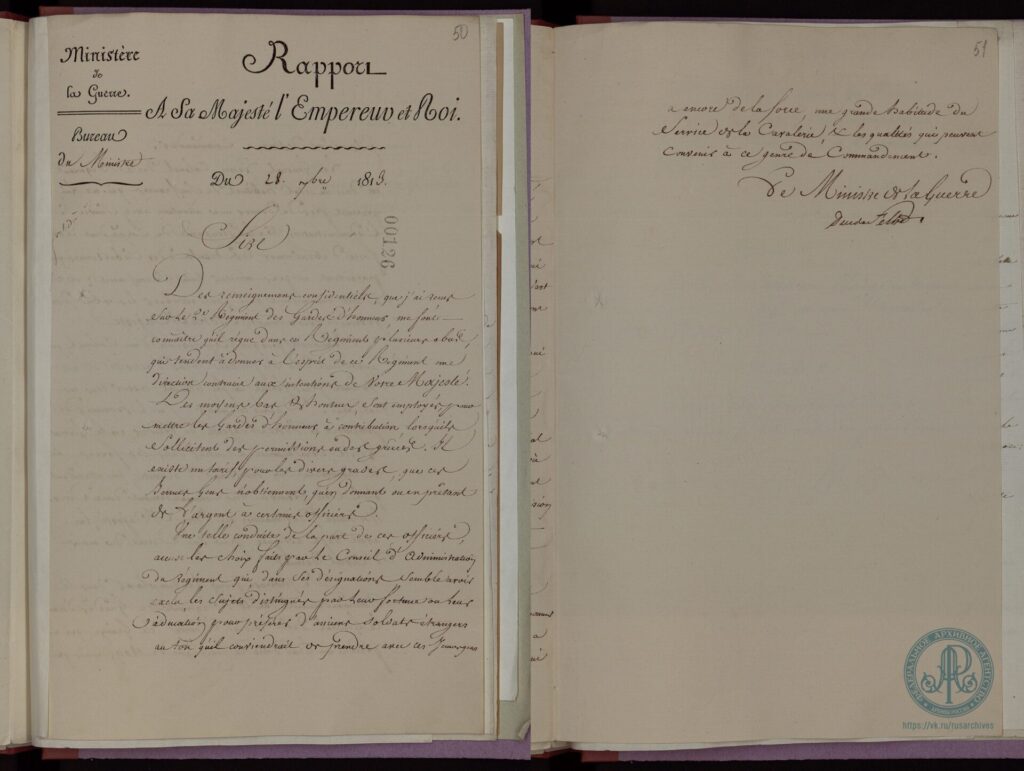 50
Ministère
de
la Guerre.
Bureau
du Ministre
Rapport
A Sa Majesté l'Empereur et Roi.
Du 28. 7bre 1813.
00126
Sire
Des renseignemens confidentiels, que j'ai reçus
sur le 2e. Régiment des Gardes d'honneur, me font
connaître qu'il règne dans ce Régiment plusieurs abus,
qui tendent à donner à l'esprit de ce Régiment une
direction contraire aux intentions de Votre Majesté.
Des moyens bas & honteux, sont employés pour
mettre les Gardes d'honneur à contribution lorsqu'ils
sollicitent des permissions ou des grâces. Il
existe un tarif pour les divers grades, que ces
jeunes gens n'obtiennent, qu'en donnant ou en prêtant
de l'argent à certains officiers.
Une telle conduite de la part de ces officiers,
les choix faits par le Conseil d'Administration
du Régiment qui dans ses désignations semble avoir
exclu les sujets distingués par leur fortune ou leur
éducation pour préférer d'anciens soldats étrangers
au ton qu'il conviendrait de prendre avec ces jeunes gens
51
a encore de la force, une grande habitude du
Service de la Cavalerie, & les qualités qui peuvent
convenir à ce genre de Commandement.
Le Ministre de la Guerre
Duc de Feltre
ФЕДЕРАЛЬНОЕ АРХИВНОЕ АГЕНТСТВО
https://vk.ru/rusarchives